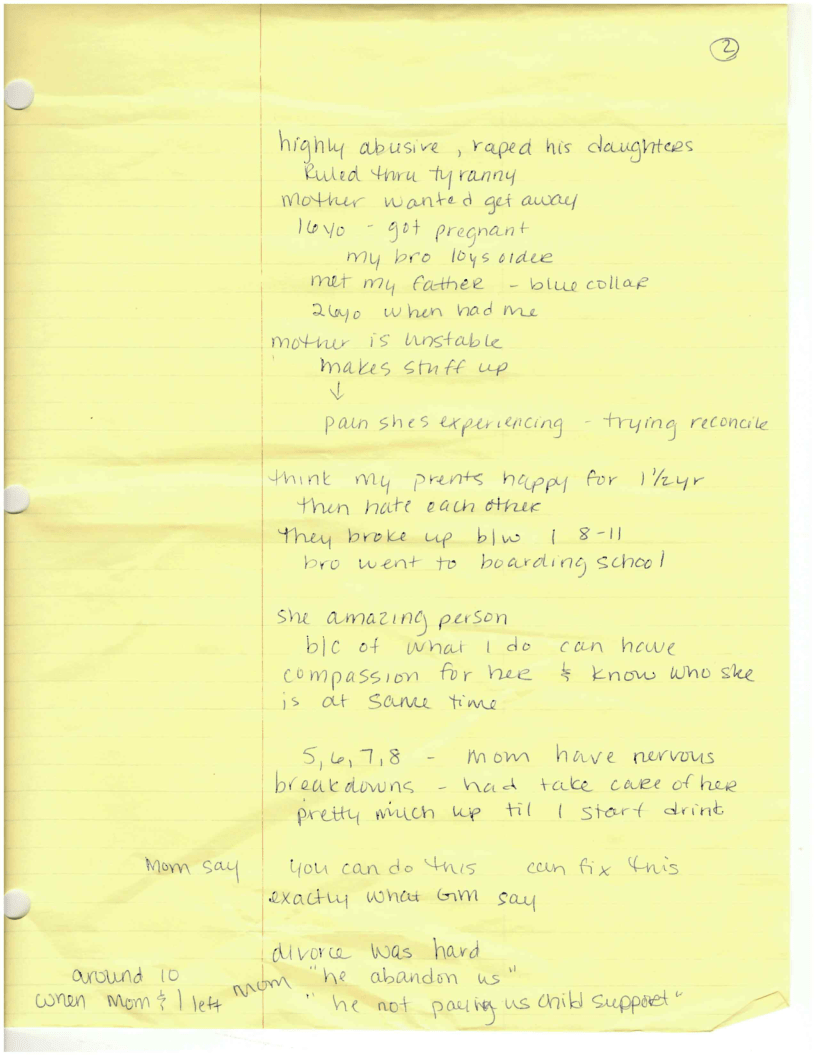 2
highly abusive, raped his daughters
Ruled thru tyranny
mother wanted get away
16 y/o - got pregnant
my bro 10ys older
met my father - blue collar
26y/o when had me
mother is unstable
makes stuff up
↓
pain shes experiencing - trying reconcile
think my prents happy for 1 1/2 yr
then hate each other
they broke up b/w I 8-11
bro went to boarding school
she amazing person
b/c of what I do can have
compassion for her & know who she
is at same time
5, 6, 7, 8 - mom have nervous
breakdowns - had take care of her
pretty much up til I start drink
Mom say you can do this can fix this
exactly what GM say
divorce was hard
around 10 when mom & I left
mom "he abandon us"
"he not paying us child support"